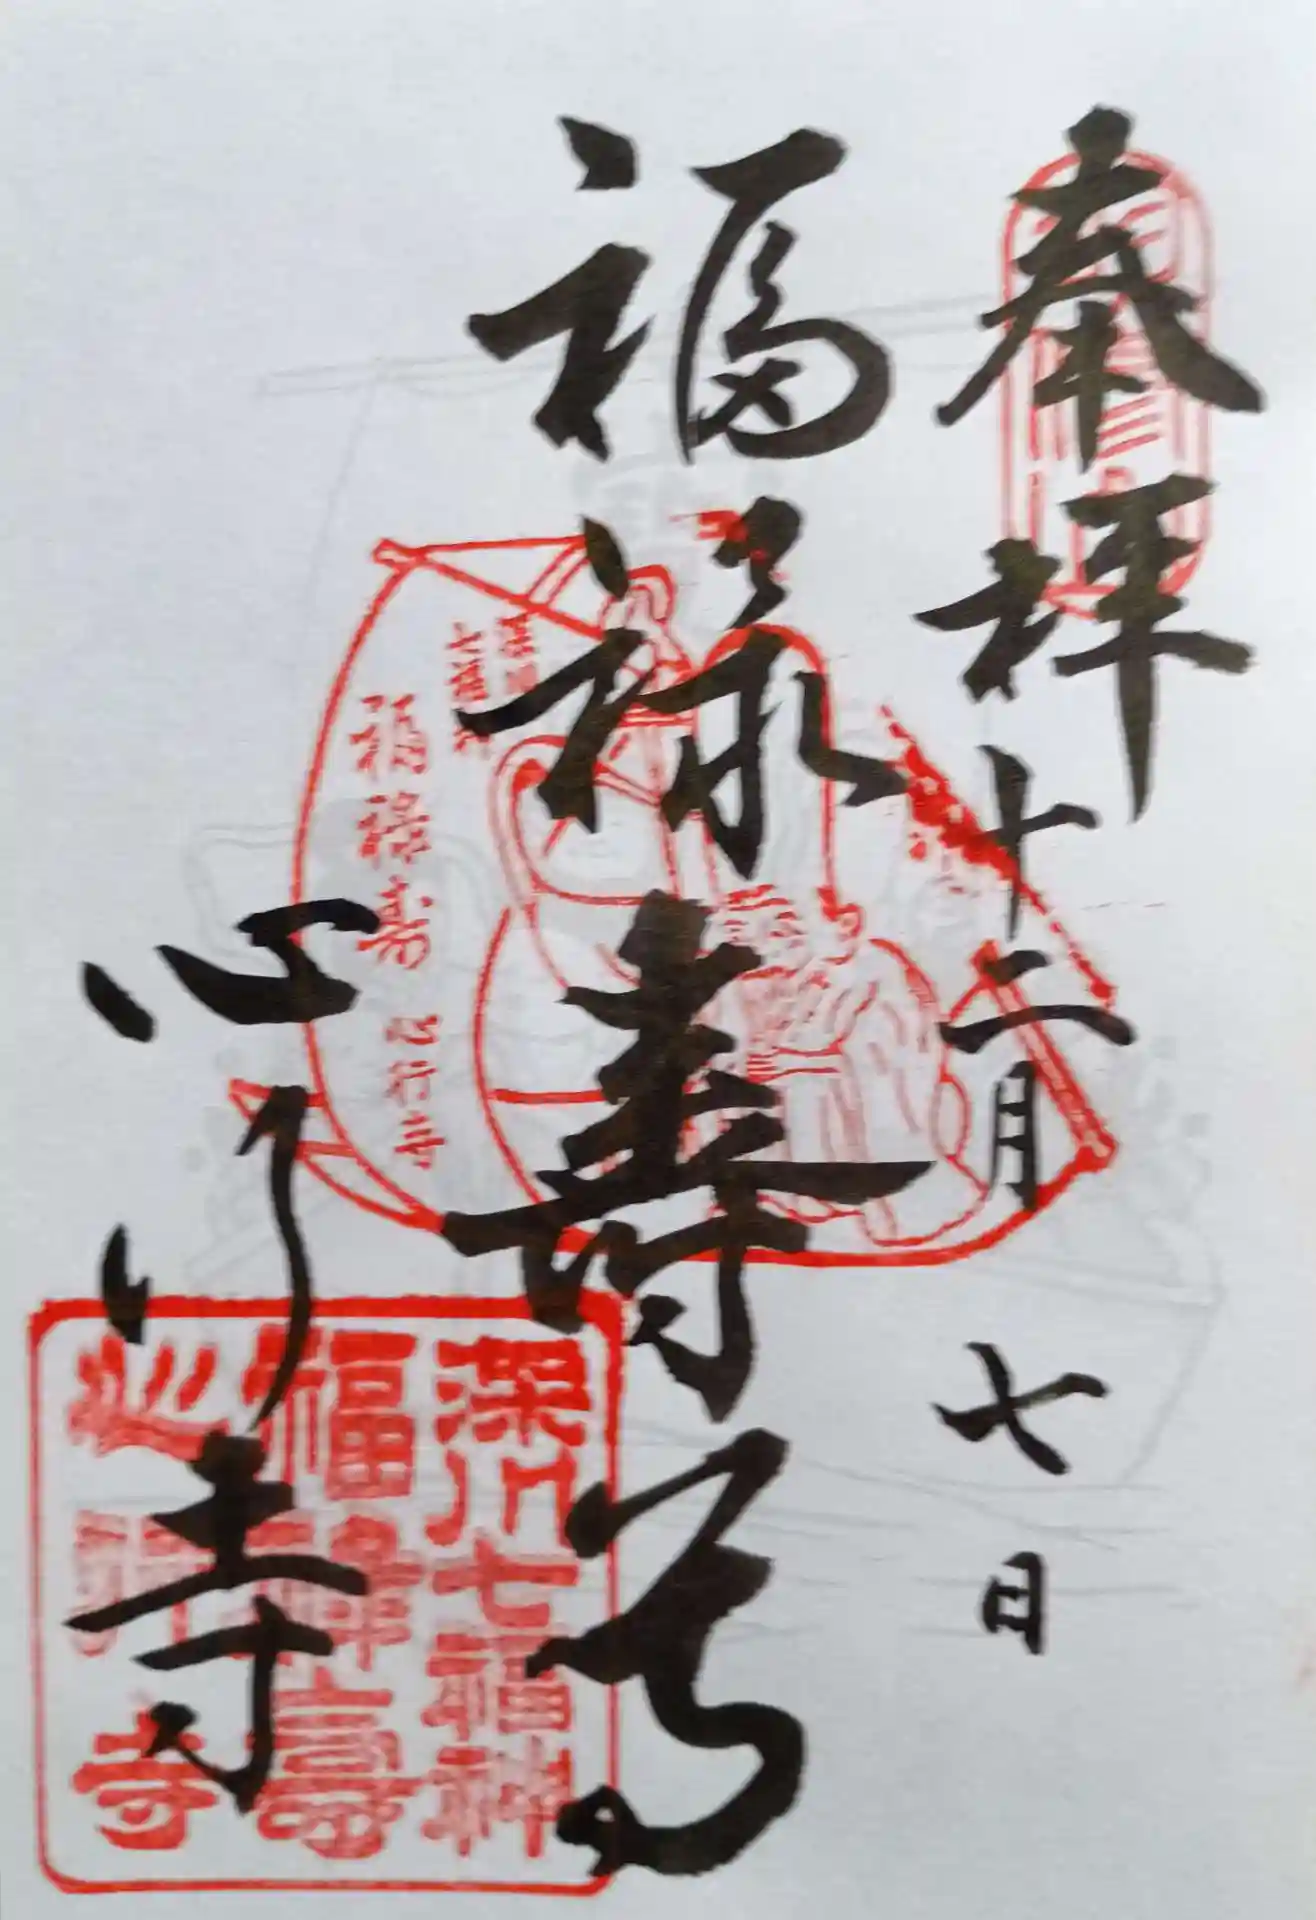 奉拝
十二月七日
福禄寿尊
心行寺
七福神
福禄寿 心行寺
深川七福神
福禄寿
心行寺